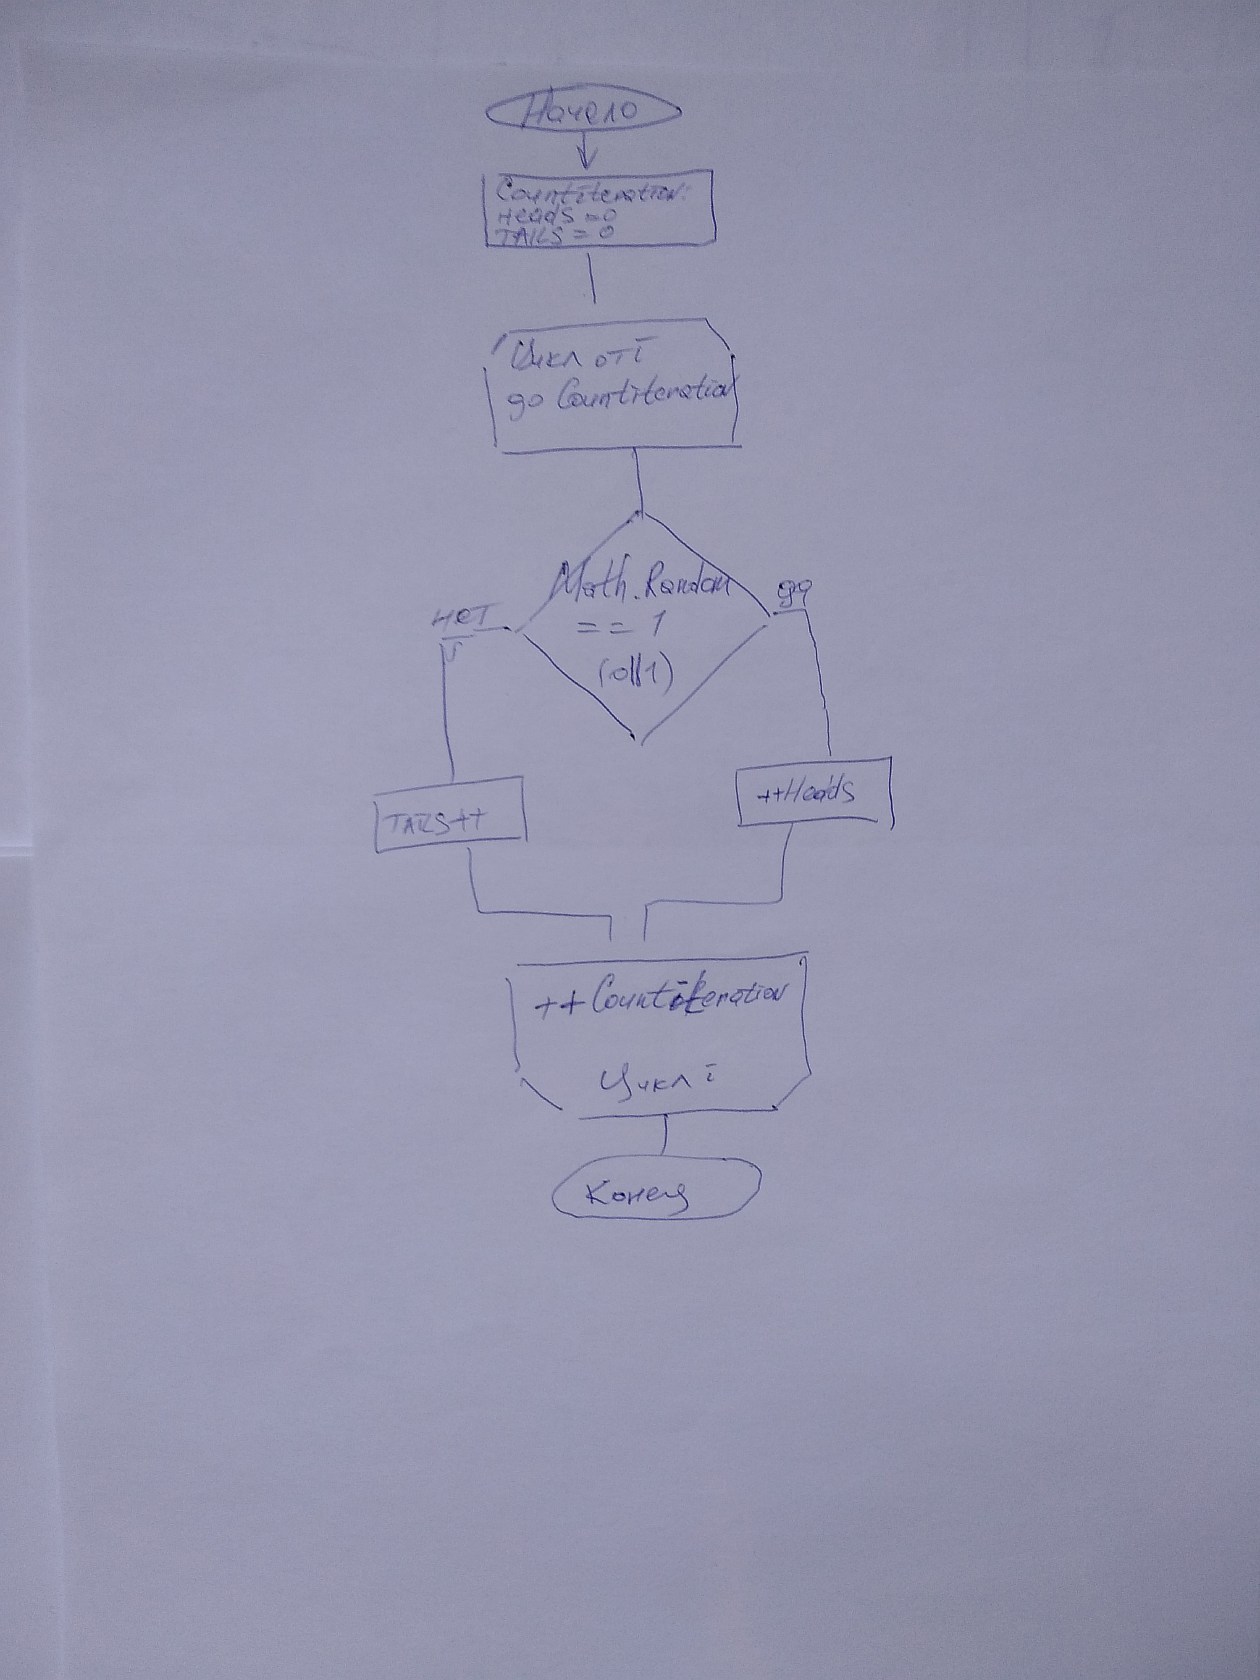 Начало
Countiteration:
Heads = 0
TAILS = 0
Цикл от i
до Countiteration
Math.Random
== 1
(0||1)
нет
да
TAILS++
++Heads
++Countiteration
Цикл i
Конец